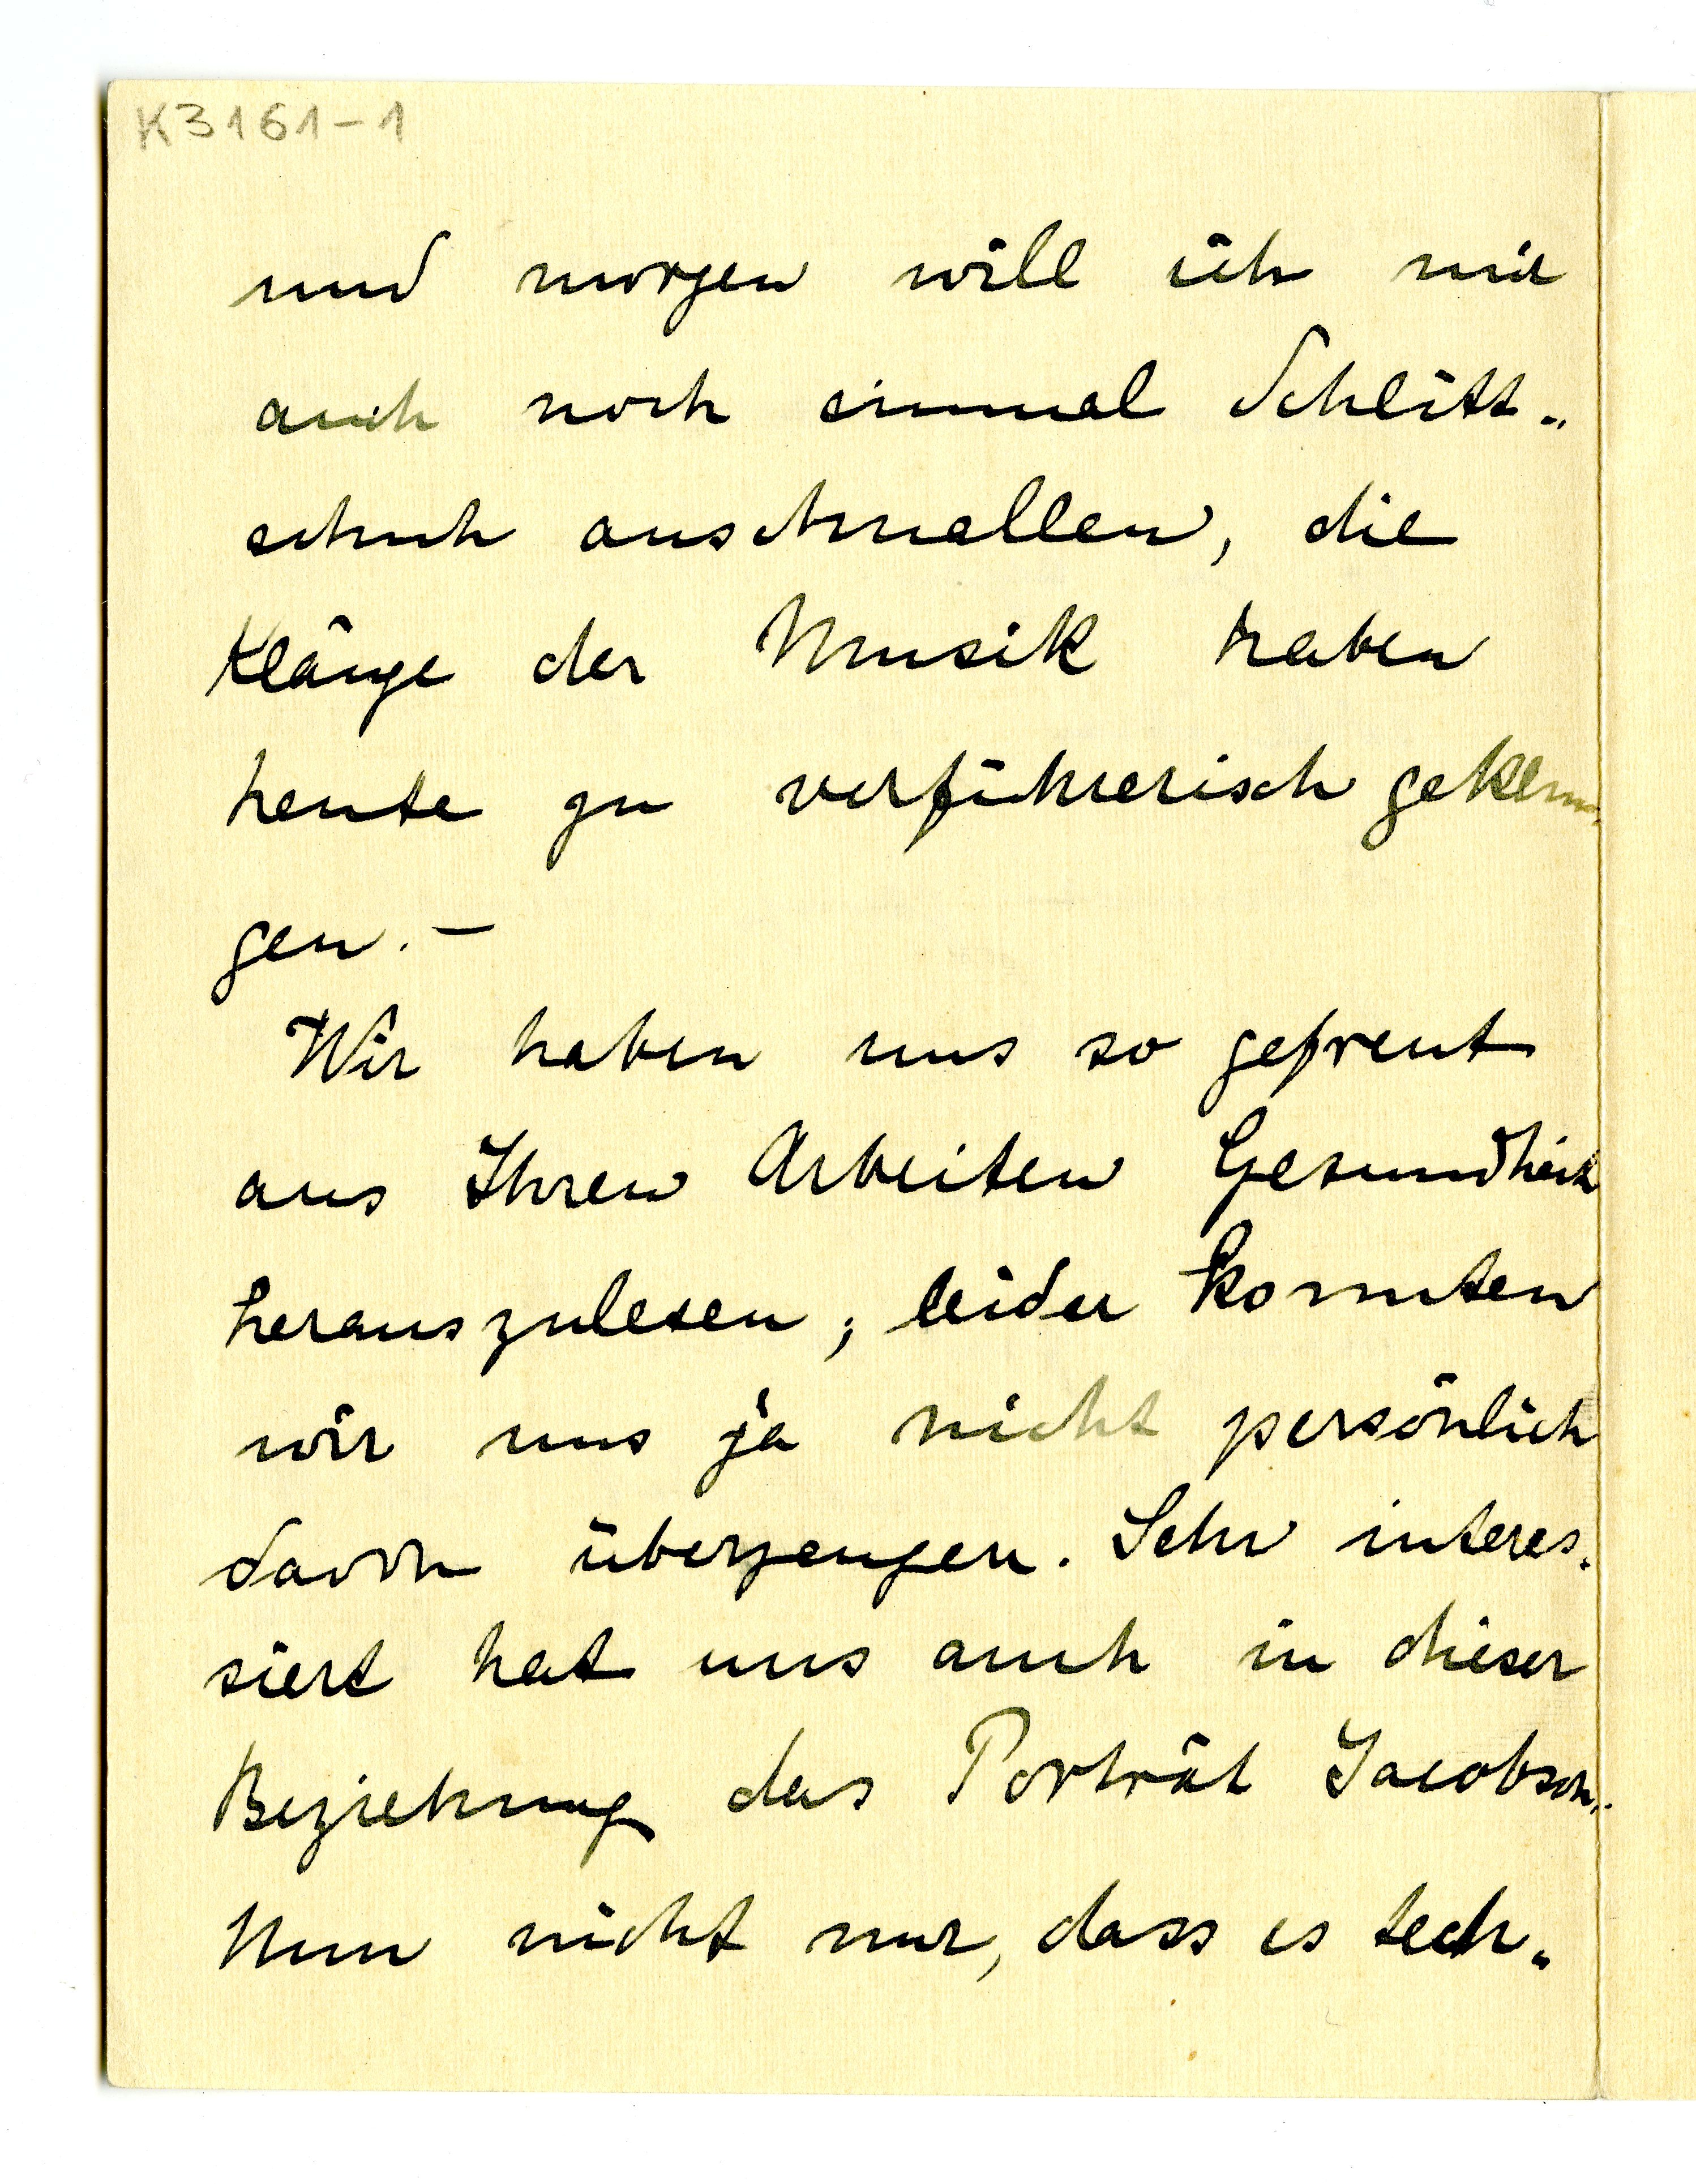 K3161-1
und morgen will ich mir
auch noch einmal Schlitt-
schuh anschnallen, die
Klänge der Musik haben
heute zu verführerisch geklun-
gen. –
Wir haben uns so gefreut
aus Ihren Arbeiten Gesundheit
herauszulesen, leider konnten
wir uns ja nicht persönlich
davon überzeugen. Sehr interes-
siert hat uns auch in dieser
Beziehung das Porträt Jacobson.
Nun nicht nur, dass es tech-